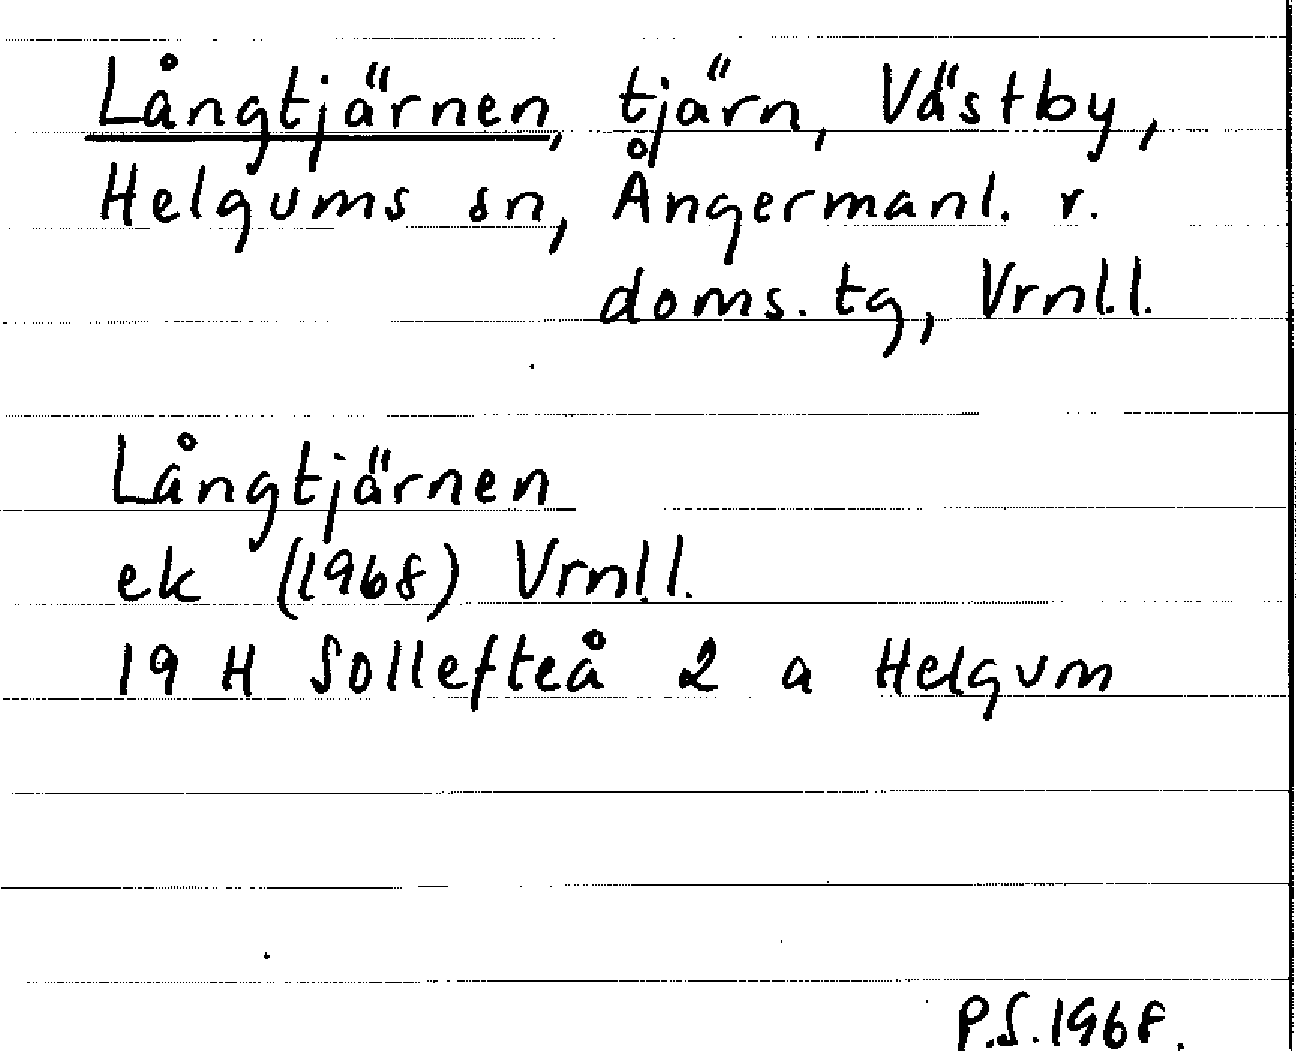 Långtjärnen, tjärn, Västby,
Helgums sn, Ångermanl. v.
doms. tg, Vrnl.l.
Långtjärnen
ek (1968) Vrnl.l.
19 H Sollefteå 2 a Helgum
P.S. 1968.